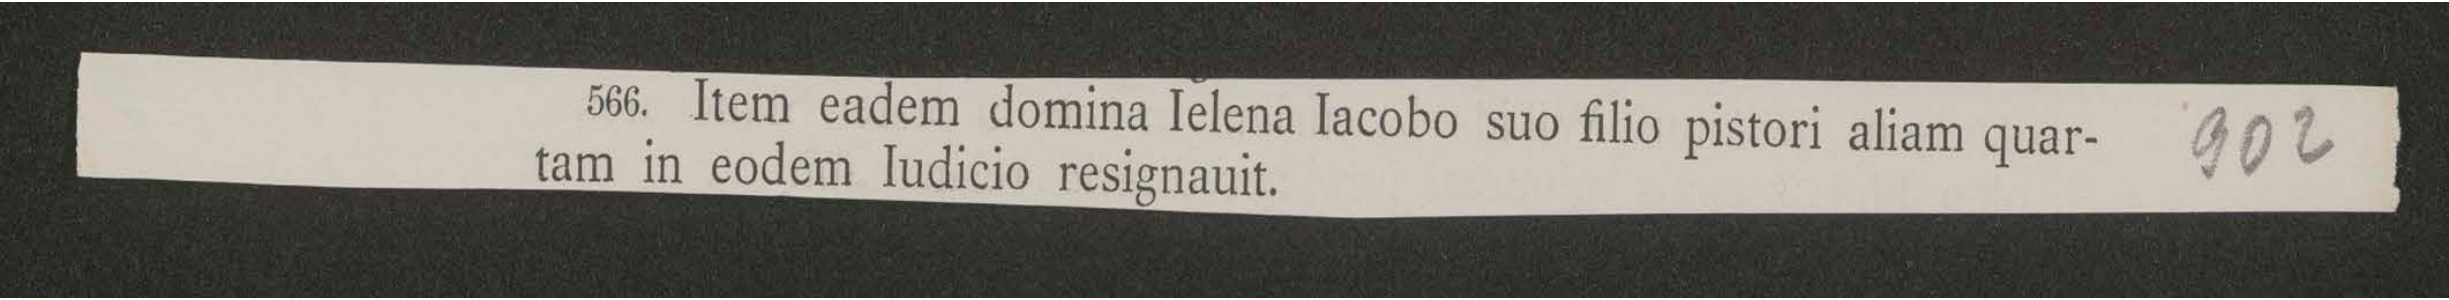 566. Item eadem domina Ielena Iacobo suo filio pistori aliam quar- 902
tam in eodem Iudicio resignauit.